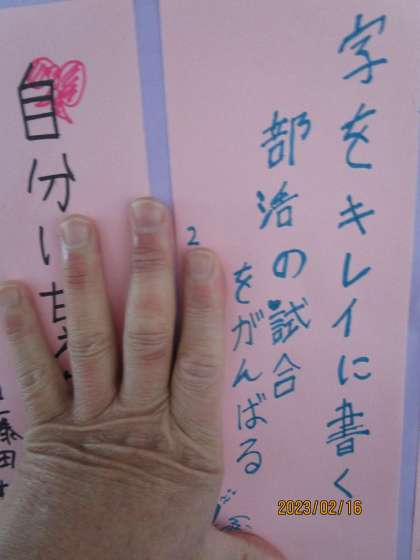 字をキレイに書く
部活の試合
をがんばる
2
自分に甘
藤田
2023/02/16